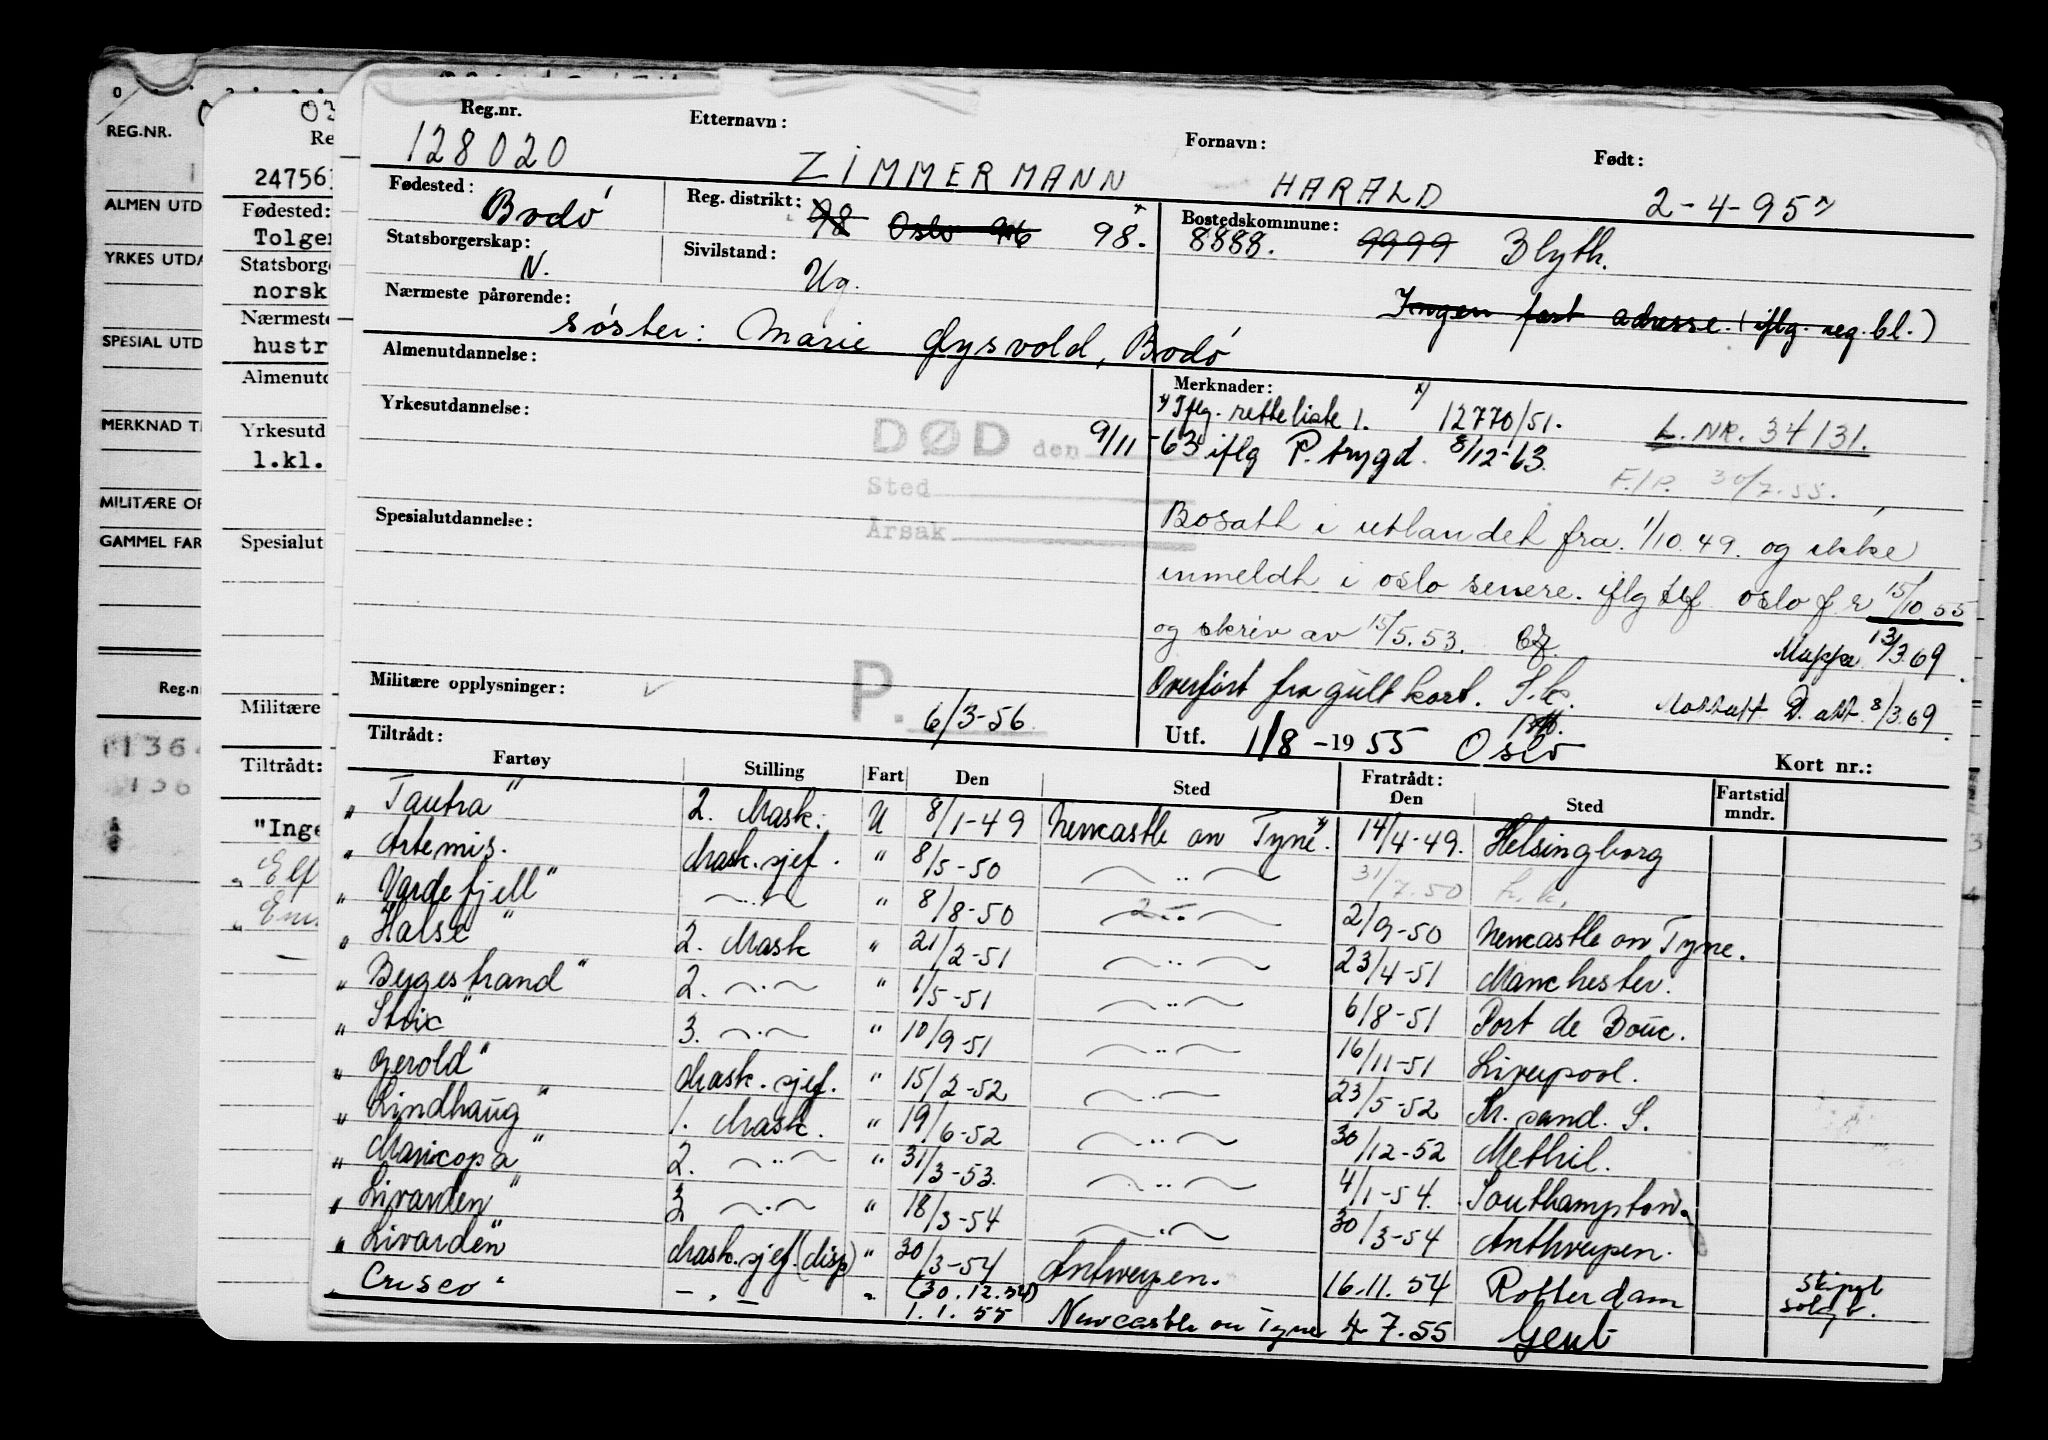 REG.NR.
ALMEN UTD
YRKES UTDA
SPECIAL UTD
MERKNAD T
MILITÆRE OP
GAMMEL FAR
Reg.n
1364
03
Re
24756
Fødested:
Tolge
Statsborge
norsk
Nærmeste
hustr
Almenutd
Yrkesutd
l.kl.
Spesialut
Militære
Tiltrådt:
"Inge
Reg.nr. Etternavn: Fornavn: Født:
128020 ZIMMERMANN HARALD 2-4-95
Fødested: Bodø Reg. distrikt: 98 Oslo 98. Bostedskommune: 8888. 9999 Blyth.
Statsborgerskap: N. Sivilstand: Ug.
Ingen fast adresse. (iflg. reg. bl.)
Nærmeste pårørende: søster: Marie Gysvold, Bodø
Almenutdannelse:
Merknader:
x) Iflg. retteliste 1. x) 12770/51. L. NR. 34131.
Yrkesutdannelse:
DØD den 9/11-63 iflg P. trygd. 8/12-63.
F.P. 30/7.55.
Sted
Årsak
Spesialutdannelse:
Bosatt i utlandet fra 1/10.49. og ikke
innmeldt i oslo senere. iflg tlf oslo f.r 15/10.55
og skriv av 15/5.53.
Mappe 13/3.69.
Militære opplysninger:
Overført fra gult kort. D. att. 8/3.69.
P. 6/3-56.
Utf. 1/8-1955 Oslo
Kort nr.:
Tiltrådt: Fratrådt:
Fartøy Stilling Fart Den Sted Den Sted Fartstid mndr.
" Tautra " 2. Mask. U 8/1-49 Newcastle on Tyne. 14/4-49. Helsingborg
" Artemis. Mask.sjef. " 8/5-50 —..— 31/7.50 h.k.
" Vardefjell" —..— " 8/8-50 —..— 2/9-50 Newcastle on Tyne.
" Halse " 2. Mask " 21/2-51 —..— 23/4-51 Manchester.
" Bygestrand " 2. —..— " 1/5-51 —..— 6/8-51 Port de Bouc.
" Stoic " 3. —..— " 10/9-51 —..— 16/11-51 Liverpool.
" Gerold" Mask.sjef. " 15/2-52 —..— 23/5-52 Kr. sand. S.
" Lindhaug " 1. Mask. " 19/6-52 —..— 30/12-52 Methil.
" Maricopa " 2. —..— " 31/3-53. —..— 4/1-54. Southampton.
" Livarden " —..— " 18/3-54 —..— 30/3-54 Anthverpen.
" Livarden" Mask.sjef. (disp) " 30/3-54 Antwerpen. 16.11.54 Rotterdam Skipet solgt.
" Crusco " —.— " (30.12.54) 1.1.55 Newcastle on Tyne 4 7.55 Gent